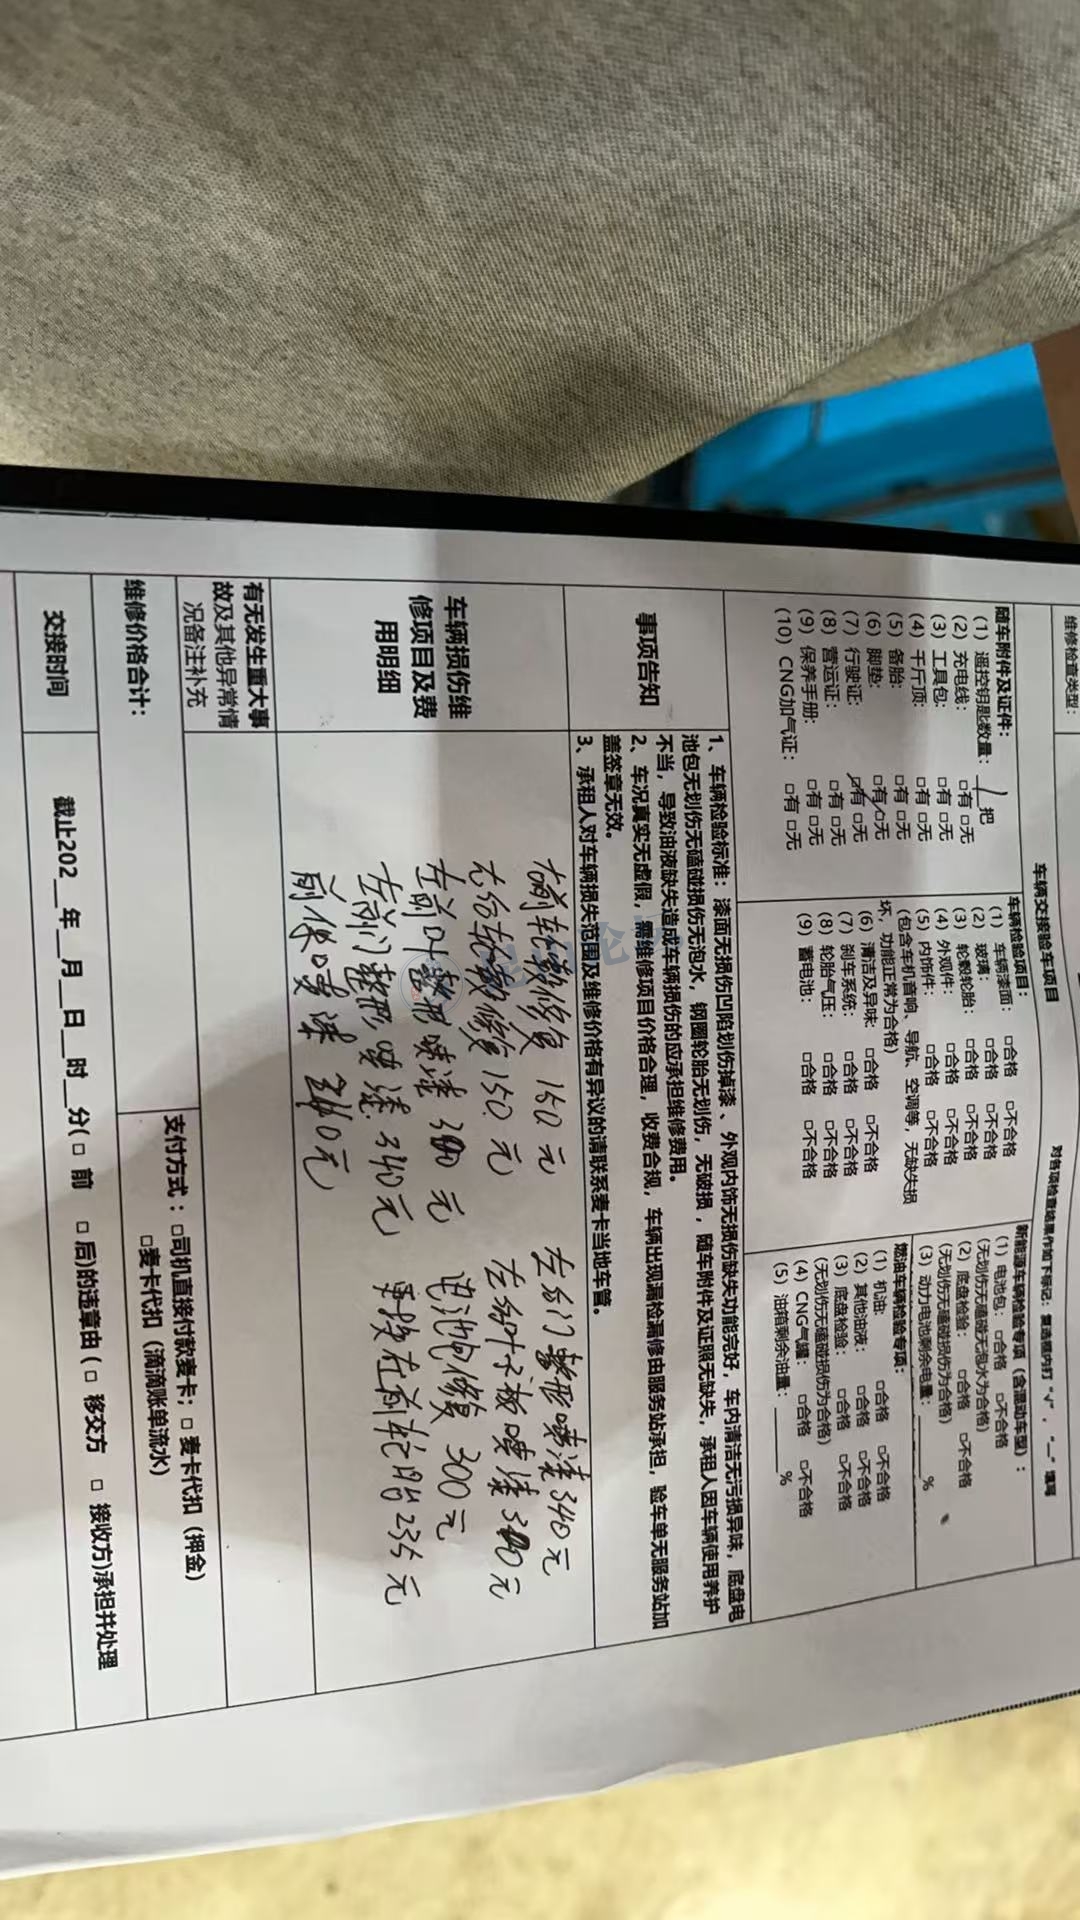 维修检查类型：
车辆交接验车项目
对各项检查结果作如下标记：复选框内打“√”，“—”填写
随车附件及证件：
（1）遥控钥匙数量：1把
（2）充电线：□有 □无
（3）工具包：□有 □无
（4）千斤顶：□有 □无
（5）备胎：□有 □无
（6）脚垫：□有 □无
（7）行驶证：□有 □无
（8）营运证：□有 □无
（9）保养手册：□有 □无
（10）CNG加气证：□有 □无
车辆检验项目：
（1）车辆漆面：□合格 □不合格
（2）玻璃：□合格 □不合格
（3）轮毂轮胎：□合格 □不合格
（4）外观件：□合格 □不合格
（5）内饰件：□合格 □不合格
（包含车机音响、导航、空调等，无缺失损
坏，功能正常为合格）
（6）清洁及异味：□合格 □不合格
（7）刹车系统：□合格 □不合格
（8）轮胎气压：□合格 □不合格
（9）蓄电池：□合格 □不合格
新能源车辆检验专项（含混动车型）：
（1）电池包：□合格 □不合格
（无划伤无磕碰无泡水为合格）
（2）底盘检验：□合格 □不合格
（无划伤无磕碰损伤为合格）
（3）动力电池剩余电量：____%
燃油车辆检验专项：
（1）机油：□合格 □不合格
（2）其他油液：□合格 □不合格
（3）底盘检验：□合格 □不合格
（无划伤无磕碰损伤为合格）
（4）CNG气罐：□合格 □不合格
（5）油箱剩余油量：____%
事项告知
1、车辆检验标准：漆面无损伤凹陷划伤掉漆、外观内饰无损伤缺失功能完好，车内清洁无污损异味，底盘电
池包无划伤无磕碰损伤无泡水，钢圈轮胎无划伤，无破损，随车附件及证照无缺失，承租人因车辆使用养护
不当，导致油液缺失造成车辆损伤的应承担维修费用。
2、车况真实无虚假，需维修项目价格合理，收费合规，车辆出现漏检漏修由服务站承担，验车单无服务站加
盖签章无效。
3、承租人对车辆损失范围及维修价格有异议的请联系麦卡当地车管。
车辆损伤维
修项目及费
用明细
右前轮毂修复 150元
左后门整形喷漆340元
右后轮毂修复150元
左后叶子板喷漆元
左前叶整形喷漆 元
电池包修复 300元
左前门整形喷漆 340元
更换左前轮胎235元
前保喷漆 元
有无发生重大事
故及其他异常情
况备注补充
维修价格合计：
支付方式：□司机直接付款麦卡；□ 麦卡代扣（押金）
□麦卡代扣（滴滴账单流水）
交接时间
截止202__年__月__日__时__分(□ 前 □ 后)的违章由 (□ 移交方 □ 接收方)承担并处理